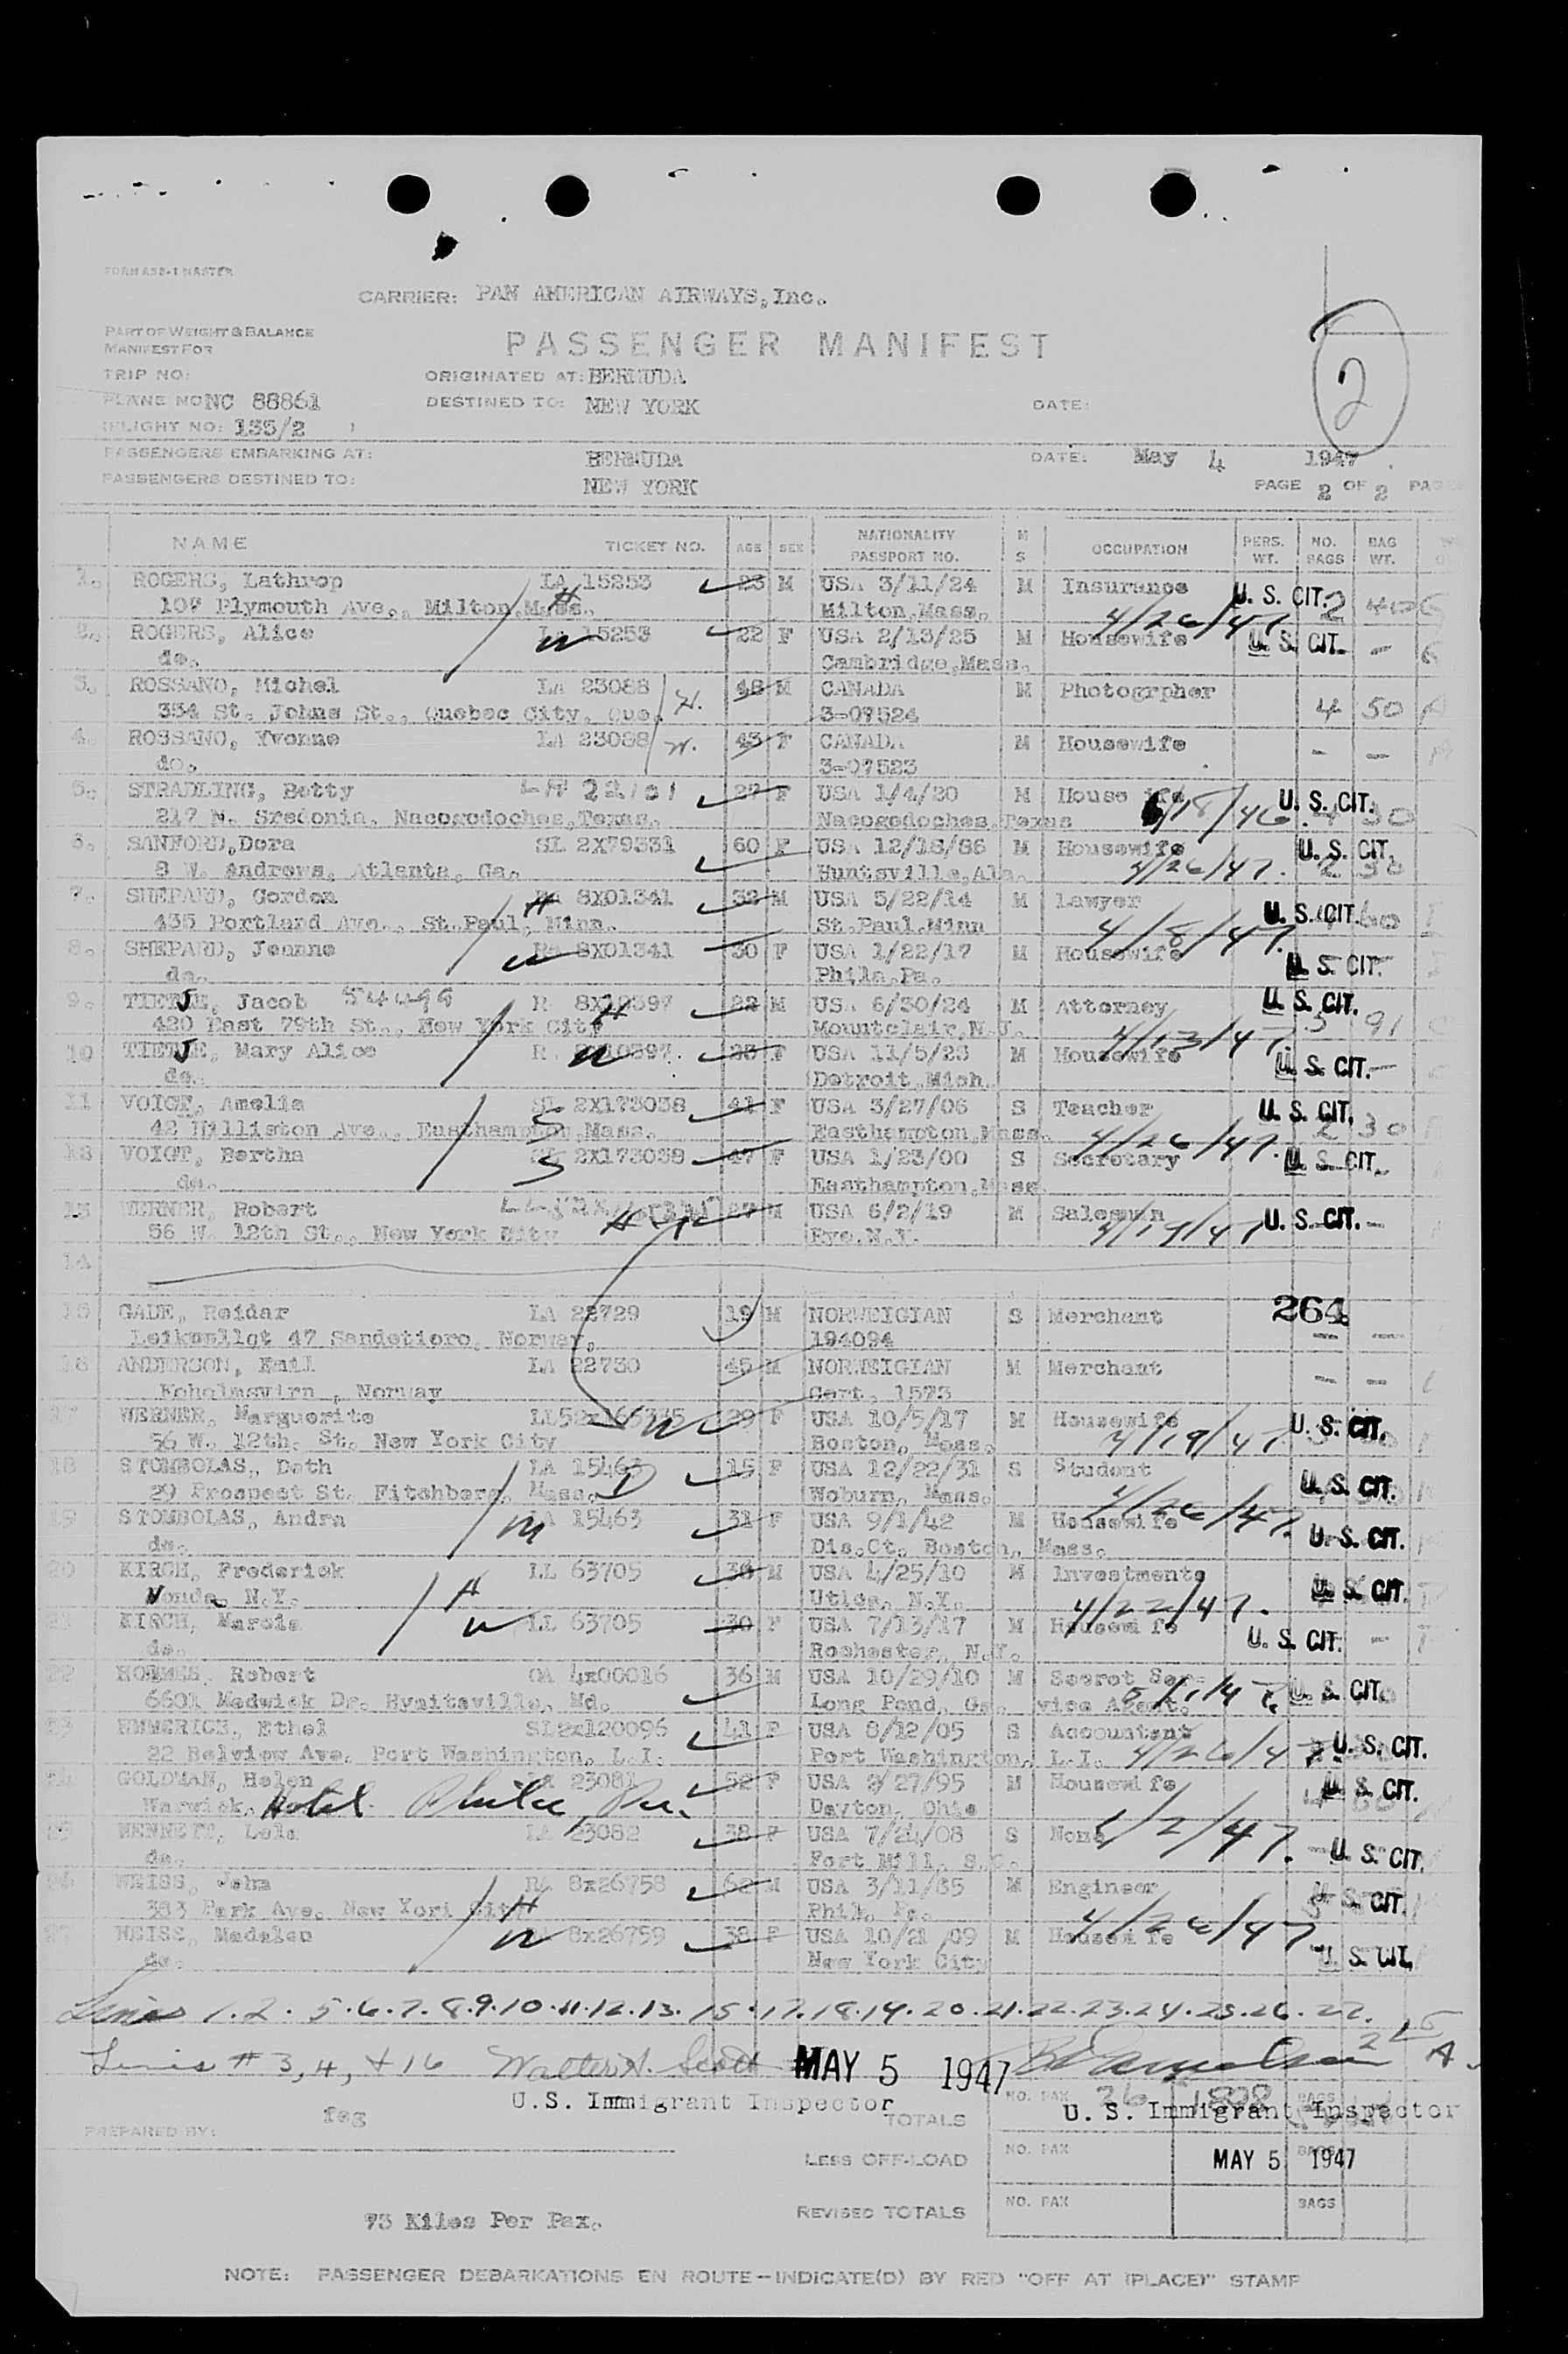 FORM A32-1 MASTER
CARRIER: PAN AMERICAN AIRWAYS, Inc.
PART OF WEIGHT & BALANCE
MANIFEST FOR
PASSENGER MANIFEST
2
TRIP NO:
ORIGINATED AT: BERMUDA
PLANE NO NC 88861
DESTINED TO: NEW YORK
DATE:
(FLIGHT NO: 135/2 )
PASSENGERS EMBARKING AT: BERMUDA DATE: May 4 1947
PASSENGERS DESTINED TO: NEW YORK PAGE 2 OF 2
NAME TICKET NO. AGE SEX NATIONALITY PASSPORT NO. M S OCCUPATION PERS. WT. NO. BAGS BAG WT.
1. ROGERS, Lathrop LA 15253 23 M USA 3/11/24 M Insurance U. S. CIT. 2 40
Plymouth Ave., Milton, Mass. H Milton, Mass. 4/26/47
2. ROGERS, Alice 15253 W 22 F USA 2/13/25 M Housewife U. S. CIT. -
do. Cambridge, Mass.
3. ROSSANO, Michel LA 23088 H. 48 M CANADA M Photogrpher 4 50
354 St. Johns St., Quebec City, Que. 3-07524
4. ROSSANO, Yvonne LA 23088 W. 43 F CANADA M Housewife - -
do. 3-07523
5. STRADLING, Betty 27 F USA 1/4/20 M U. S. CIT. 30
217 N. Fredonia, Nacogodoches, Texas. Nacogodoches, Texas /18/46
6. SANFORD, Dora SL 2X79331 60 F USA 12/18/86 M Housewife U. S. CIT.
8 W. Andrews, Atlanta, Ga. Huntsville, Ala. 4/26/47.
7. SHEPARD, Gordon 8X01341 32 M USA 5/22/14 M Lawyer U. S. CIT. 60
435 Portland Ave., St. Paul, Minn. H St. Paul, Minn 4/8/47.
8. SHEPARD, Jeanne RA 8X01341 W 30 F USA 1/22/17 M Housewife U. S. CIT.
do. Phila, Pa.
9. TIETJE, Jacob 8X10397 22 M USA 6/30/24 M Attorney U. S. CIT. 91
420 East 79th St., New York City H Mountclair, N.J. 4/13/47
10 TIETJE, Mary Alice W 23 F USA 11/5/23 M Housewife U. S. CIT. -
do. Detroit, Mich.
11 VOIGT, Amelia SL 2X173038 41 F USA 3/27/06 S Teacher U. S. CIT. 2 30
42 Williston Ave., Easthampton, Mass. S Easthampton, Mass. 4/26/47.
12 VOIGT, Bertha 2X173038 S 47 F USA 1/23/00 S Secretary U. S. CIT.
do. Easthampton, Mass
13 WERNER, Robert 27 M USA 6/2/19 M Salesman U. S. CIT. -
56 W. 12th St., New York City H Rye, N.Y. 4/19/47
14
15 GADE, Reidar LA 22729 19 M NORWEIGIAN S Merchant 264
47 Norway. 194094
16 ANDERSON, Emil LA 22730 45 M NORWEIGIAN M Merchant - -
Norway Cert. 1573
17 WERNER, Marguerite W 29 F USA 10/5/17 M Housewife U. S. CIT.
56 W. 12th. St. New York City Boston, Mass. 4/19/47.
18 STOMBOLAS, Doth LA 15463 15 F USA 12/22/31 S Student U. S. CIT.
29 Prospect St. Fitchberg, Mass. D Woburn, Mass. 4/26/47.
19 STOMBOLAS, Andra LA 15463 M 31 F USA 9/1/42 M Housewife U. S. CIT.
do. Dis. Ct. Boston, Mass.
20 KIRCH, Frederick LL 63705 36 M USA 4/25/10 M Investments U. S. CIT.
N.Y. H Utica, N.Y. 4/22/47.
21 KIRCH, Marcia W LL 63705 30 F USA 7/13/17 M Housewife U. S. CIT. -
do. Rochester, N.Y.
22 HOLMES, Robert OA 4x00016 36 M USA 10/29/10 M Secret Ser- U. S. CIT.
6601 Medwick Dr. Hyaitsville, Md. Long Pond, Ga. vice Agent.
23 EMMERICH, Ethel SL2x120096 41 F USA 8/12/05 S Accountant U. S. CIT.
22 Belview Ave. Port Washington, L.I. Port Washington, L.I. 4/26/47
24 GOLDMAN, Helen 23081 52 F USA 27/95 M Housewife U. S. CIT.
Warwick, Hotel Phila, Pa. Dayton, Ohio
25 BENNETT, Lela LA 23082 38 F USA 7/24/08 S None U. S. CIT.
do. Fort Mill, S.C. 1/2/47.
26 WEISS, John RA 8x26758 62 M USA 3/11/85 M Engineer U. S. CIT.
383 Park Ave. New Yori City H Phil, Pa. 4/26/47
27 WEISS, Madalen W 8x26759 38 F USA 10/21/09 M Housewife U. S. CIT.
do. New York City
Lines 1. 2. 5. 6. 7. 8. 9. 10. 11. 12. 13. 15. 17. 18. 19. 20. 21. 22. 23. 24. 25. 26. 27.
Lines # 3, 4, + 16 Walter A. Scott MAY 5 1947
U.S. Immigrant Inspector
TOTALS NO. PAX 26 1898 BAGS
U. S. Immigrant Inspector
PREPARED BY: feg
LESS OFF-LOAD NO. PAX MAY 5 1947 BAGS
REVISED TOTALS NO. PAX BAGS
73 Kilos Per Pax.
NOTE: PASSENGER DEBARKATIONS EN ROUTE-INDICATE(D) BY RED "OFF AT (PLACE)" STAMP